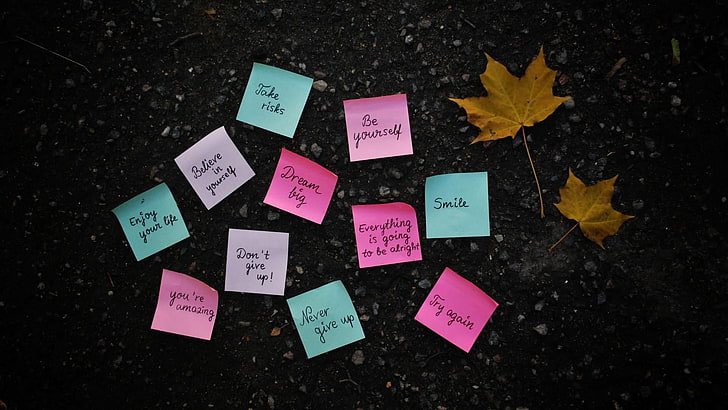 Take
risks
Be
yourself
Believe
in
yourself
Dream
big
Enjoy
your life
Smile
Everything
is going
to be alright
Don't
give
up!
you're
amazing
Never
give up
Try again